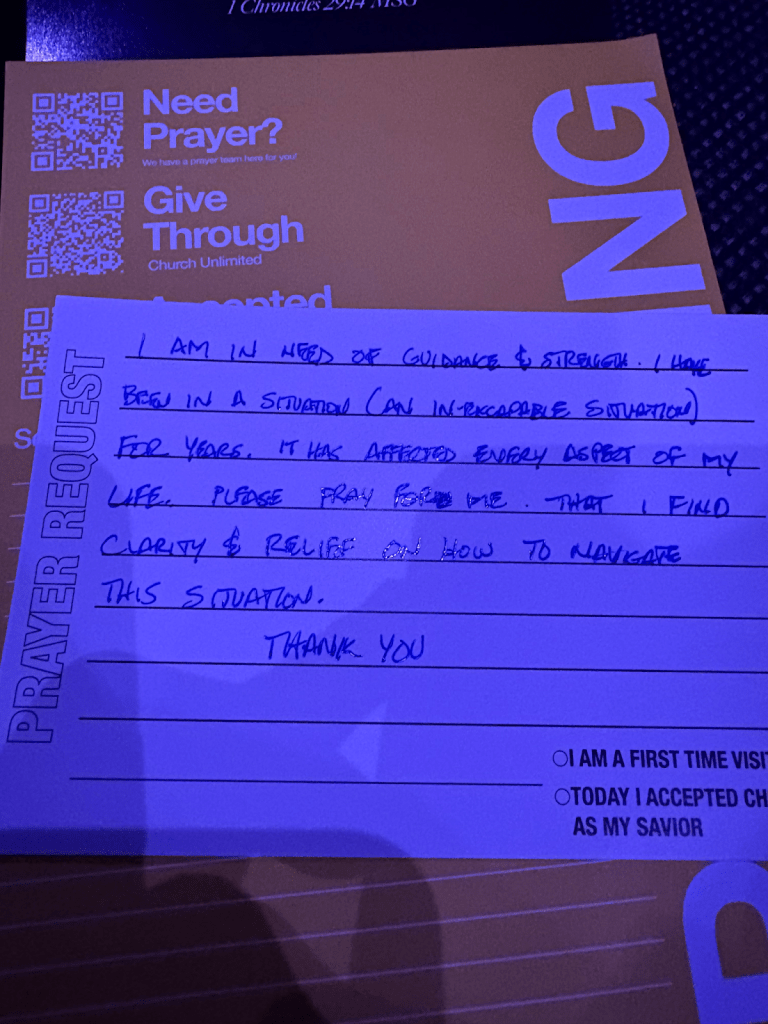 1 Chronicles 29:14 MSG
Need
Prayer?
We have a prayer team here for you!
Give
Through
Church Unlimited
Accepted
NG
PRAYER REQUEST
I AM IN NEED OF GUIDANCE & STRENGTH. I HAVE
BEEN IN A SITUATION (AN INESCAPABLE SITUATION)
FOR YEARS. IT HAS AFFECTED EVERY ASPECT OF MY
LIFE. PLEASE PRAY FOR ME. THAT I FIND
CLARITY & RELIEF ON HOW TO NAVIGATE
THIS SITUATION.
THANK YOU
O I AM A FIRST TIME VISI
O TODAY I ACCEPTED CH
AS MY SAVIOR